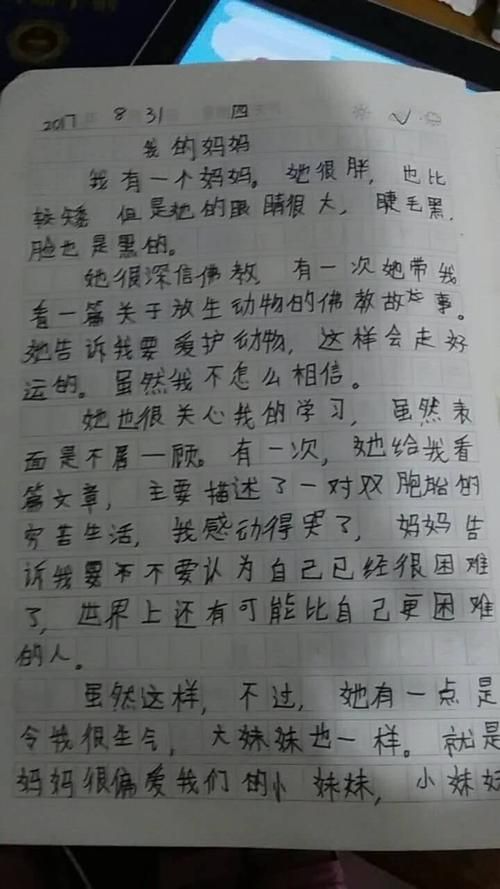 2017年 8月31日 星期四
我的妈妈
我有一个妈妈。她很胖，也比
较矮 但是她的眼睛很大，睫毛黑，
脸也是黑的。
她很深信佛教，有一次她带我
看一篇关于放生动物的佛教故些事。
她告诉我要爱护动物，这样会走好
运的。虽然我不怎么相信。
她也很关心我的学习，虽然表
面是不屑一顾。有一次，她给我看
篇文章，主要描述了一对双胞胎的
穷苦生活，我感动得哭了，妈妈告
诉我要不不要认为自己已经很困难
了，世界上还有可能比自己更困难
的人。
虽然这样，不过，她有一点是
令我很生气，大妹妹也一样。就是
妈妈很偏爱我们的小妹妹，小妹妹